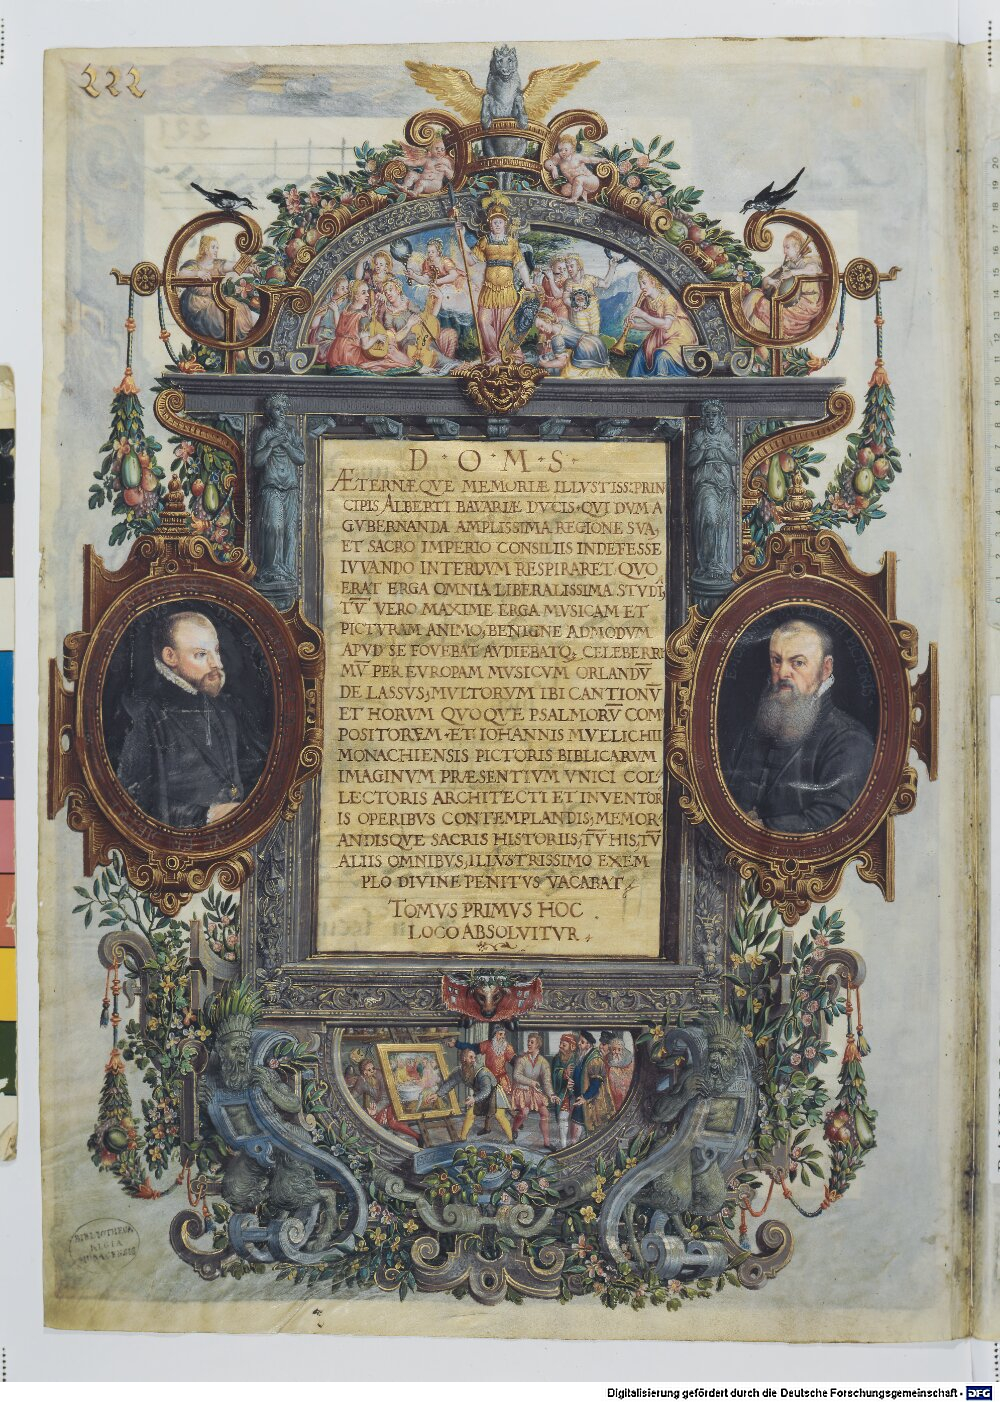 222
D·O·M·S·
ÆTERNÆQVE MEMORIÆ ILLVSTISS: PRIN
CIPIS ALBERTI BAVARIÆ DVCIS, QVI DVM A
GVBERNANDA AMPLISSIMA REGIONE SVA,
ET SACRO IMPERIO CONSILIIS INDEFESSE
IVVANDO INTERDVM RESPIRARET, QVO
ERAT ERGA OMNIA LIBERALISSIMA STVDI,
TV̄ VERO MAXIME ERGA MVSICAM ET
PICTVRAM ANIMO, BENIGNE ADMODVM
APVD SE FOVEBAT AVDIEBATQ; CELEBERRI
MV̄ PER EVROPAM MVSICVM ORLANDV̄
DE LASSVS, MVLTORVM IBI CANTIONV̄
ET HORVM QVOQVE PSALMORV̄ COM
POSITOREM, ET IOHANNIS MVELICHII
MONACHIENSIS PICTORIS BIBLICARVM
IMAGINVM PRÆSENTIVM VNICI COL
LECTORIS ARCHITECTI ET INVENTOR
IS OPERIBVS CONTEMPLANDIS, MEMOR
ANDISQVE SACRIS HISTORIIS, TV̄ HIS, TV̄
ALIIS OMNIBVS, ILLVSTRISSIMO EXEM
PLO DIVINE PENITVS VACABAT,
TOMVS PRIMVS HOC
LOCO ABSOLVITVR.
BIBLIOTHECA
REGIA
MONACENSIS
Digitalisierung gefördert durch die Deutsche Forschungsgemeinschaft - DFG